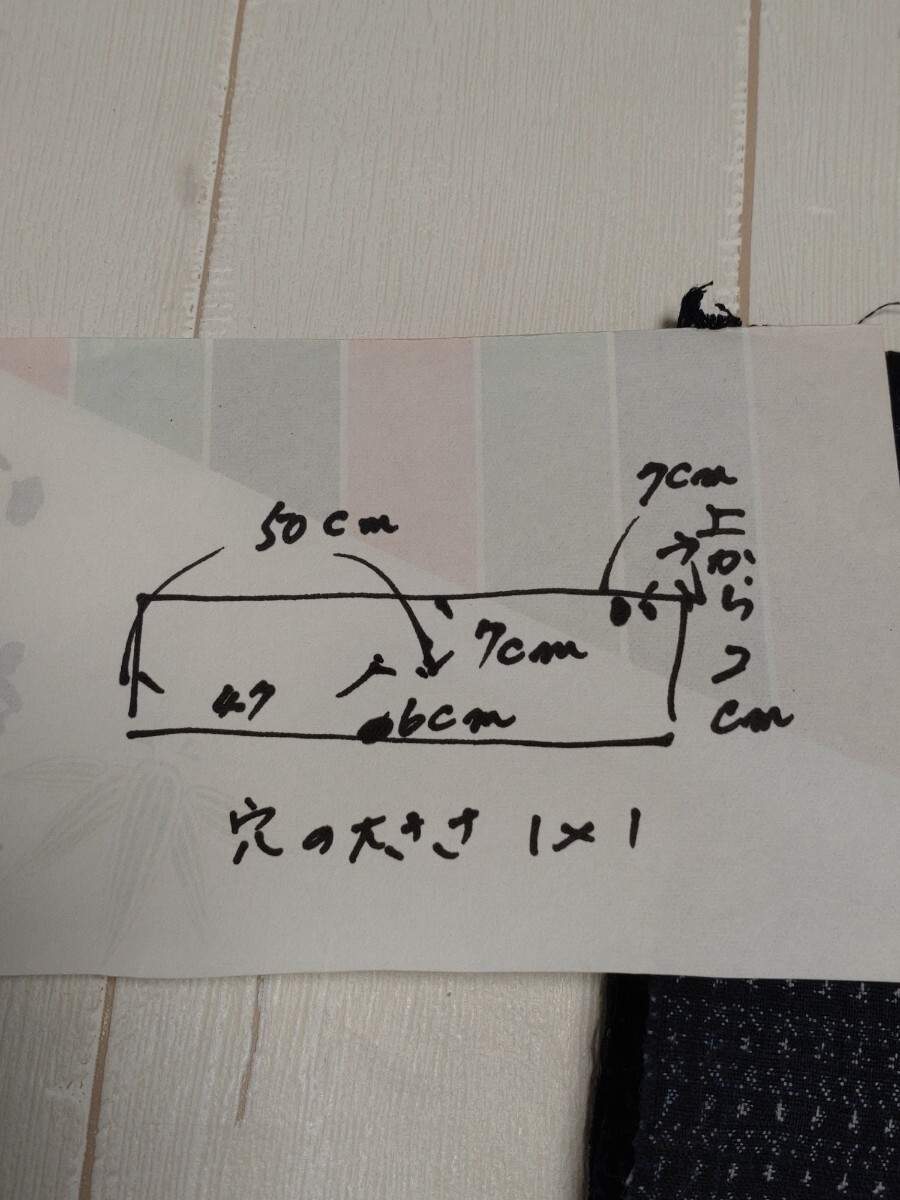 50cm
7cm
上から7cm
7cm
47
6cm
穴の大きさ 1×1